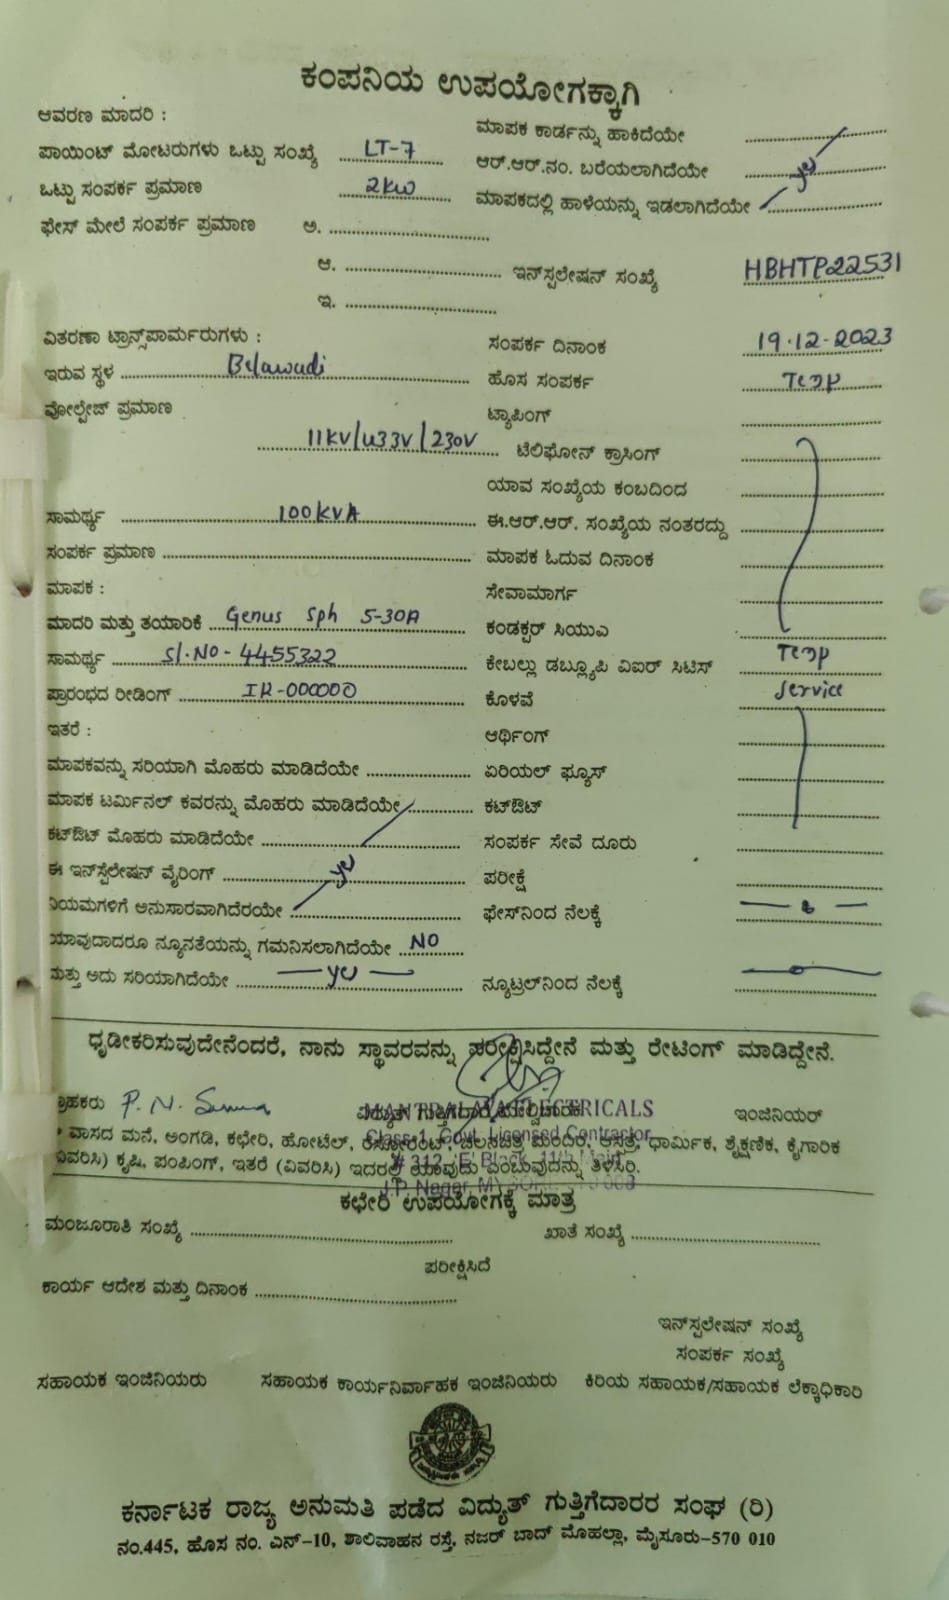 ಕಂಪನಿಯ ಉಪಯೋಗಕ್ಕಾಗಿ
ಆವರಣ ಮಾದರಿ :
ಮಾಪಕ ಕಾರ್ಡನ್ನು ಹಾಕಿದೆಯೇ
ಪಾಯಿಂಟ್ ಮೋಟರುಗಳು ಒಟ್ಟು ಸಂಖ್ಯೆ LT-7
ಆರ್.ಆರ್.ನಂ. ಬರೆಯಲಾಗಿದೆಯೇ
ಒಟ್ಟು ಸಂಪರ್ಕ ಪ್ರಮಾಣ 2KW
ಮಾಪಕದಲ್ಲಿ ಹಾಳೆಯನ್ನು ಇಡಲಾಗಿದೆಯೇ
ಫೇಸ್ ಮೇಲೆ ಸಂಪರ್ಕ ಪ್ರಮಾಣ ಅ.
ಆ.
ಇನ್‌ಸ್ಪಲೇಷನ್ ಸಂಖ್ಯೆ HBHTP22531
ಇ.
ವಿತರಣಾ ಟ್ರಾನ್ಸ್‌ಪಾರ್ಮರುಗಳು :
ಸಂಪರ್ಕ ದಿನಾಂಕ 19.12-2023
ಇರುವ ಸ್ಥಳ Belawadi
ಹೊಸ ಸಂಪರ್ಕ Temp
ವೋಲ್ಟೇಜ್ ಪ್ರಮಾಣ
ಟ್ಯಾಪಿಂಗ್
11KV/433V/230V
ಟೆಲಿಫೋನ್ ಕ್ರಾಸಿಂಗ್
ಯಾವ ಸಂಖ್ಯೆಯ ಕಂಬದಿಂದ
ಸಾಮರ್ಥ್ಯ 100KVA
ಈ.ಆರ್.ಆರ್. ಸಂಖ್ಯೆಯ ನಂತರದ್ದು
ಸಂಪರ್ಕ ಪ್ರಮಾಣ
ಮಾಪಕ ಓದುವ ದಿನಾಂಕ
ಮಾಪಕ :
ಸೇವಾಮಾರ್ಗ
ಮಾದರಿ ಮತ್ತು ತಯಾರಿಕೆ Genus Sph 5-30A
ಕಂಡಕ್ಟರ್ ಸಿಯುಎ
ಸಾಮರ್ಥ್ಯ Sl.No-4455322
ಕೇಬಲ್ಲು ಡಬ್ಲ್ಯೂಪಿ ವಿಐರ್ ಸಿಟಿಸ್ Temp
ಪ್ರಾರಂಭದ ರೀಡಿಂಗ್ IR-000000
ಕೊಳವೆ Service
ಇತರೆ :
ಆರ್ಥಿಂಗ್
ಮಾಪಕವನ್ನು ಸರಿಯಾಗಿ ಮೊಹರು ಮಾಡಿದೆಯೇ
ಏರಿಯಲ್ ಫ್ಯೂಸ್
ಮಾಪಕ ಟರ್ಮಿನಲ್ ಕವರನ್ನು ಮೊಹರು ಮಾಡಿದೆಯೇ
ಕಟ್‌ಔಟ್
ಕಟ್‌ಔಟ್ ಮೊಹರು ಮಾಡಿದೆಯೇ
ಸಂಪರ್ಕ ಸೇವೆ ದೂರು
ಈ ಇನ್‌ಸ್ಪೆಲೇಷನ್ ವೈರಿಂಗ್
ಪರೀಕ್ಷೆ
ನಿಯಮಗಳಿಗೆ ಅನುಸಾರವಾಗಿದೆರಯೇ
ಫೇಸ್‌ನಿಂದ ನೆಲಕ್ಕೆ
ಯಾವುದಾದರೂ ನ್ಯೂನತೆಯನ್ನು ಗಮನಿಸಲಾಗಿದೆಯೇ NO
ಮತ್ತು ಅದು ಸರಿಯಾಗಿದೆಯೇ
ನ್ಯೂಟ್ರಲ್‌ನಿಂದ ನೆಲಕ್ಕೆ
ಧೃಡೀಕರಿಸುವುದೇನೆಂದರೆ, ನಾನು ಸ್ಥಾವರವನ್ನು ಪರೀಕ್ಷಿಸಿದ್ದೇನೆ ಮತ್ತು ರೇಟಿಂಗ್ ಮಾಡಿದ್ದೇನೆ.
ಗ್ರಾಹಕರು P. N.
MANTRALAYA ELECTRICALS
ಇಂಜಿನಿಯರ್
* ವಾಸದ ಮನೆ, ಅಂಗಡಿ, ಕಛೇರಿ, ಹೋಟೆಲ್, ರೆಸ್ಟೋರೆಂಟ್, ಚಲನಚಿತ್ರ ಮಂದಿರ, ಆಸ್ಪತ್ರೆ, ಧಾರ್ಮಿಕ, ಶೈಕ್ಷಣಿಕ, ಕೈಗಾರಿಕ
Class-1, Govt. Licensed Contractor
(ವಿವರಿಸಿ) ಕೃಷಿ, ಪಂಪಿಂಗ್, ಇತರೆ (ವಿವರಿಸಿ) ಇದರಲ್ಲಿ ಯಾವುದು ಎಂಬುವುದನ್ನು ತಿಳಿಸಿರಿ.
# 312, 'E' Block, 11th Main
J.P. Nagar,
ಕಛೇರಿ ಉಪಯೋಗಕ್ಕೆ ಮಾತ್ರ
ಮಂಜೂರಾತಿ ಸಂಖ್ಯೆ
ಖಾತೆ ಸಂಖ್ಯೆ
ಪರೀಕ್ಷಿಸಿದೆ
ಕಾರ್ಯ ಆದೇಶ ಮತ್ತು ದಿನಾಂಕ
ಇನ್‌ಸ್ಪಲೇಷನ್ ಸಂಖ್ಯೆ
ಸಂಪರ್ಕ ಸಂಖ್ಯೆ
ಸಹಾಯಕ ಇಂಜಿನಿಯರು
ಸಹಾಯಕ ಕಾರ್ಯನಿರ್ವಾಹಕ ಇಂಜಿನಿಯರು
ಕಿರಿಯ ಸಹಾಯಕ/ಸಹಾಯಕ ಲೆಕ್ಕಾಧಿಕಾರಿ
ಕರ್ನಾಟಕ ರಾಜ್ಯ ಅನುಮತಿ ಪಡೆದ ವಿದ್ಯುತ್ ಗುತ್ತಿಗೆದಾರರ ಸಂಘ (ರಿ)
ನಂ.445, ಹೊಸ ನಂ. ಎನ್-10, ಶಾಲಿವಾಹನ ರಸ್ತೆ, ನಜರ್ ಬಾದ್ ಮೊಹಲ್ಲಾ, ಮೈಸೂರು-570 010